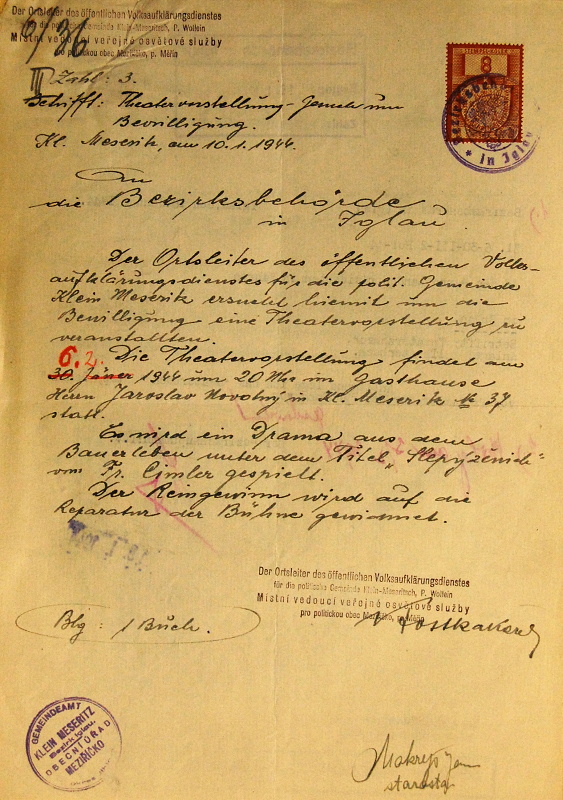 Der Ortsleiter des öffentlichen Volksaufklärungsdienstes
für die politische Gemeinde Klein-Meseritsch, P. Wollein
Místní vedoucí veřejné osvětové služby
pro politickou obec Meziříčko, p. Měřín
6/36
III Zahl: 3.
Betrifft: Theatervorstellung - Gesuch um
Bewilligung.
Kl. Meseritz, am 10.1.1944.
8
in Iglau
An
die Bezirksbehörde
in Iglau.
Der Ortsleiter des öffentlichen Volks-
aufklärungsdienstes für die polit. Gemeinde
Klein Meseritz ersucht hiemit um die
Bewilligung eine Theatervorstellung zu
veranstallten.
6.2.
Die Theatervorstellung findet am
30. Jäner 1944 um 20 Uhr im Gasthause
Herrn Jaroslav Novotný in Kl. Meseritz № 37
statt.
Es wird ein Drama aus dem
Bauerleben unter dem Titel
von Fr. Cimler gespielt.
Der Reingewinn wird auf die
Reparatur der Bühne gewidmet.
Der Ortsleiter des öffentlichen Volksaufklärungsdienstes
für die politische Gemeinde Klein-Meseritsch, P. Wollein
Místní vedoucí veřejné osvětové služby
pro politickou obec Meziříčko, p. Měřín
Blg: 1 Buch.
GEMEINDEAMT
KLEIN MESERITZ
Bezirk Iglau.
OBECNÍ ÚŘAD
MEZIŘÍČKO
starosta